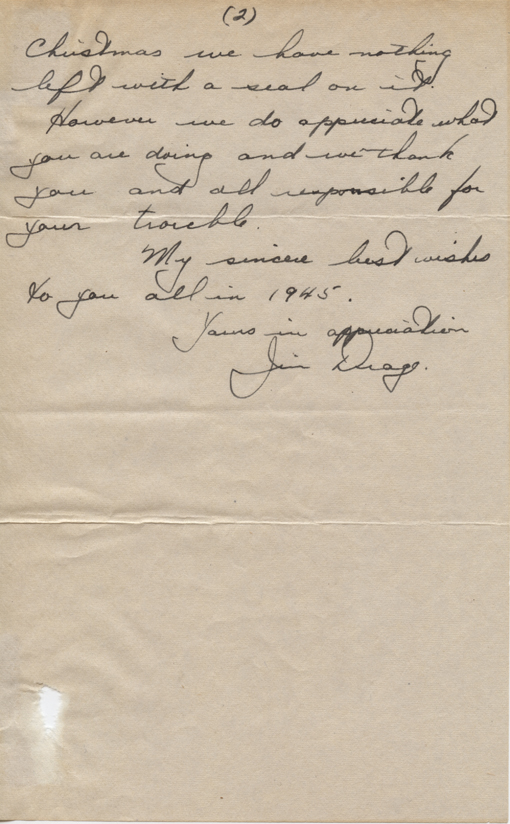 (2)
Christmas we have nothing
left with a seal on it.
However we do appreciate what
you are doing and we thank
you and all responsible for
your trouble.
My sincere best wishes
to you all in 1945.
Yours in appreciation
Jim Drage.